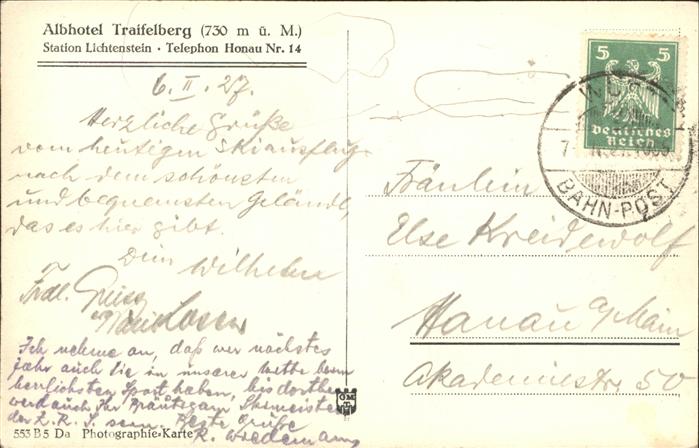 Albhotel Traifelberg (730 m ü. M.)
Station Lichtenstein · Telephon Honau Nr. 14
6. II. 27.
Herzliche Grüße
vom heutigen Skiausflug
nach dem schönsten
und bequemsten Gelände,
das es hier gibt.
Dein Wilhelm
Frdl. Gruss
Ich nehme an, daß wir nächstes
Jahr auch Sie in unserer Mitte beim
herrlichsten Sport haben, bis dorthin
wird auch Ihr Bräutigam Skimeister
der Z. R. S. sein. Beste Grüße
R. Wiedemann
553 B 5 Da Photographie-Karte
5 5
Deutsches
Reich
BAHN-POST
Fräulein
Else Kreidewolf
Hanau a/Main
Akademiestr. 50